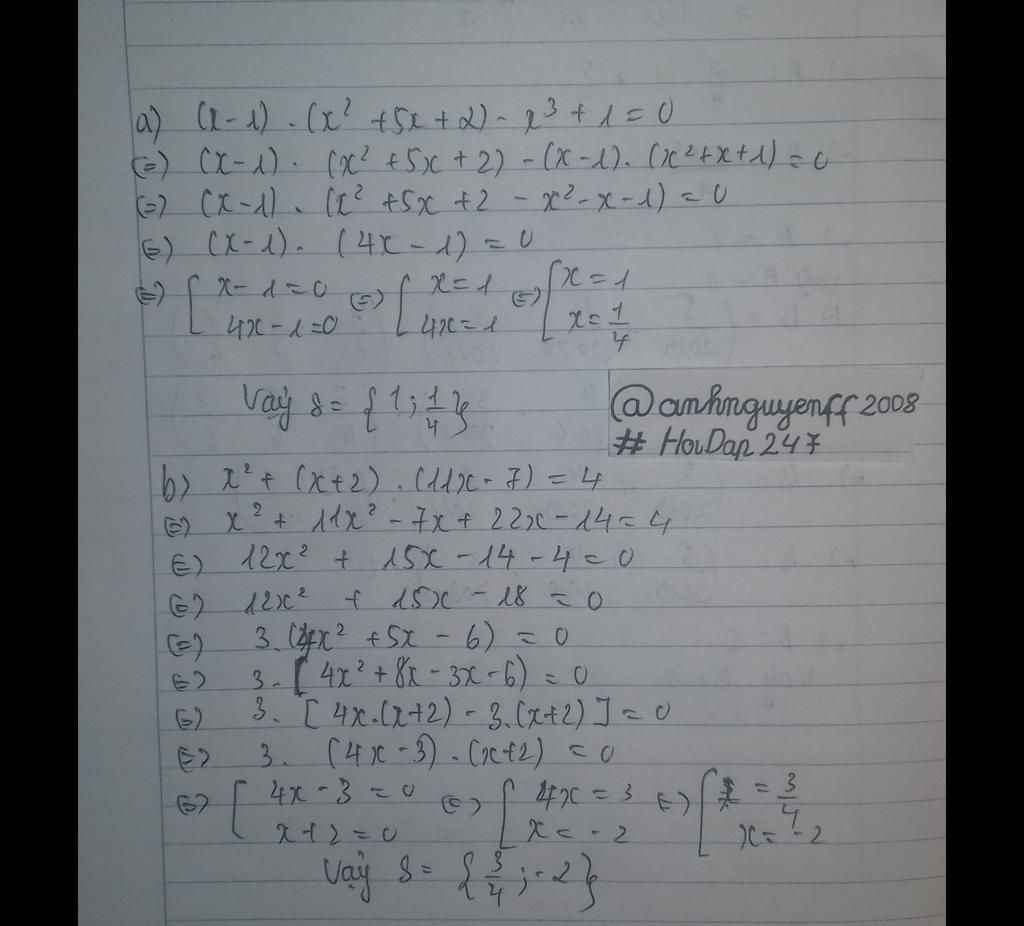 a) (x-1) . (x² +5x+2) - x³ + 1 = 0
(=) (x-1) . (x² +5x+2) - (x-1). (x²+x+1) = 0
(=) (x-1) . (x² +5x +2 - x² - x - 1) = 0
(=) (x-1) . (4x - 1) = 0
(=) [ x-1=0 ; 4x-1=0 (=) [ x=1 ; 4x=1 (=) [ x=1 ; x=1/4
Vậy S = {1; 1/4}
@anhnguyenff2008
# HoiDap 247
b) x² + (x+2) . (11x-7) = 4
(=) x² + 11x² - 7x + 22x - 14 = 4
(=) 12x² + 15x - 14 - 4 = 0
(=) 12x² + 15x - 18 = 0
(=) 3. (4x² +5x - 6) = 0
(=) 3. [ 4x² + 8x - 3x - 6) = 0
(=) 3. [ 4x.(x+2) - 3.(x+2) ] = 0
(=) 3. (4x-3) . (x+2) = 0
(=) [ 4x - 3 = 0 ; x+2 = 0 (=) [ 4x = 3 ; x = -2 (=) [ x = 3/4 ; x = -2
Vậy S = {3/4 ; -2}